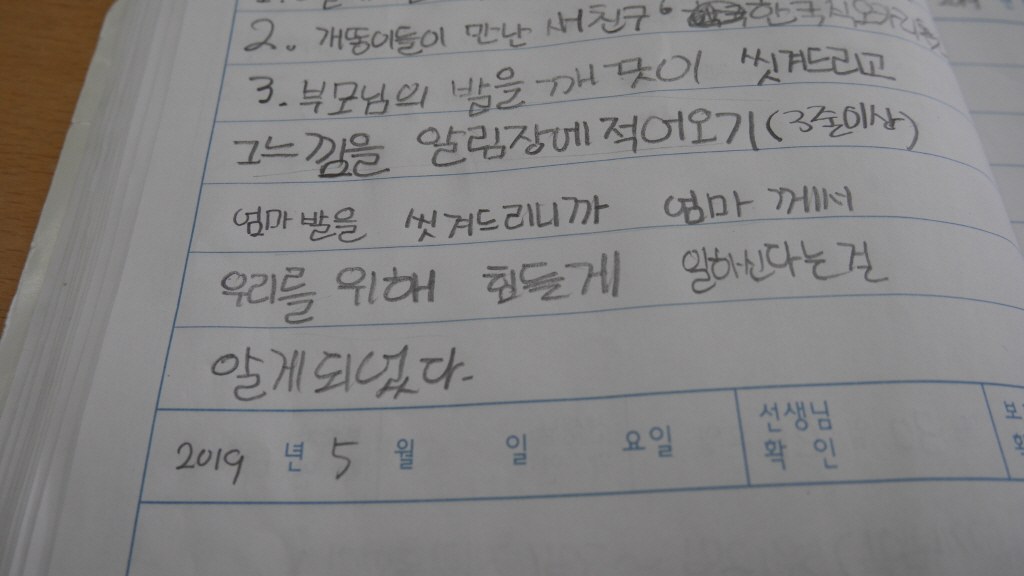 2. 개똥이들이 만난 새친구
3. 부모님의 발을 깨 끗이 씻겨드리고
그느낌을 알림장에 적어오기(3줄이상)
엄마 발을 씻겨드리니까 엄마 께서
우리를 위해 힘들게 일하신다는걸
알게되었다.
2019 년 5 월 일 요일 선생님 확인